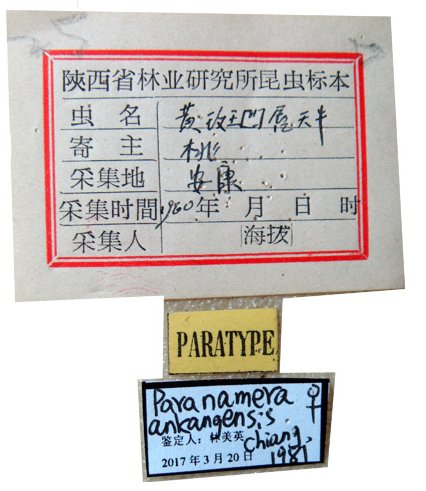 陝西省林业研究所昆虫标本
虫名 黄
寄主 桃
采集地 安康
采集时間 1960年 月 日 时
采集人 海拔
PARATYPE
Paranamera ♀
ankangensis
Chiang,
鉴定人:林美英
1981
2017年3月20日